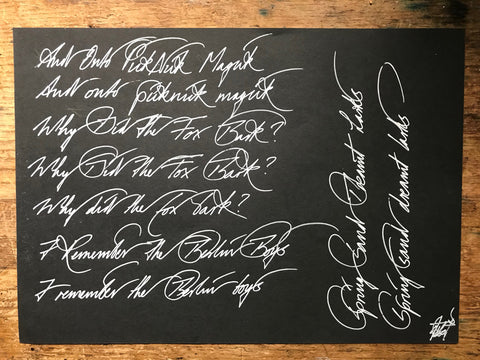 And Onto PickNick Magick
And onto picknick magick
Why Did the Fox Bark?
Why Did the Fox Bark?
Why did the fox bark?
I Remember the Berlin Boys
I remember the Berlin boys
Spring Sand Dreamt Larks
Spring sand dreamt larks